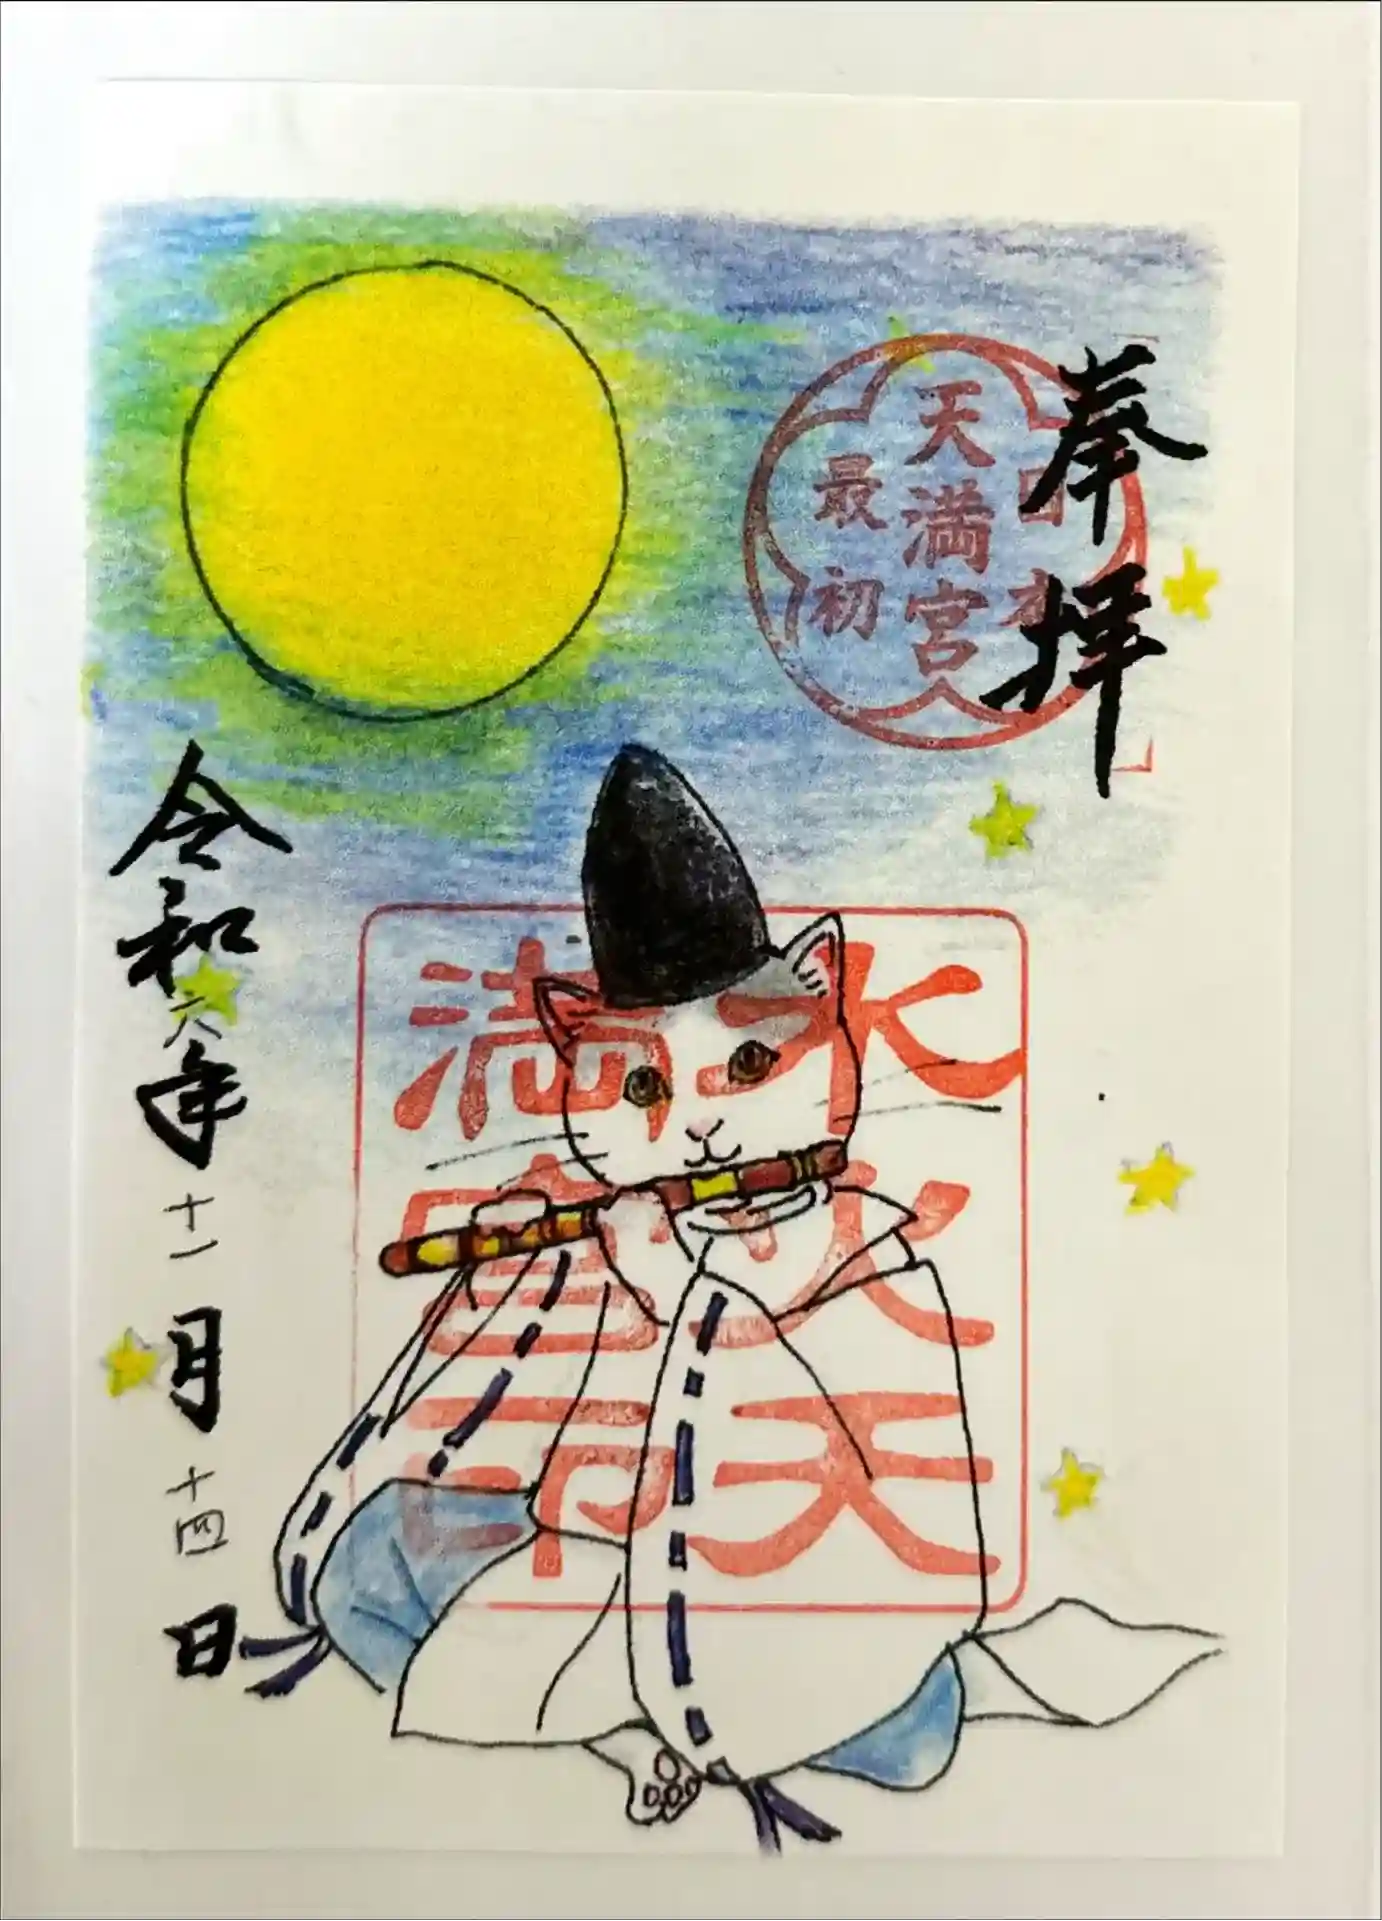 奉拝
日本
天満宮
最初
水火天
満宮印
令和六年十一月十四日